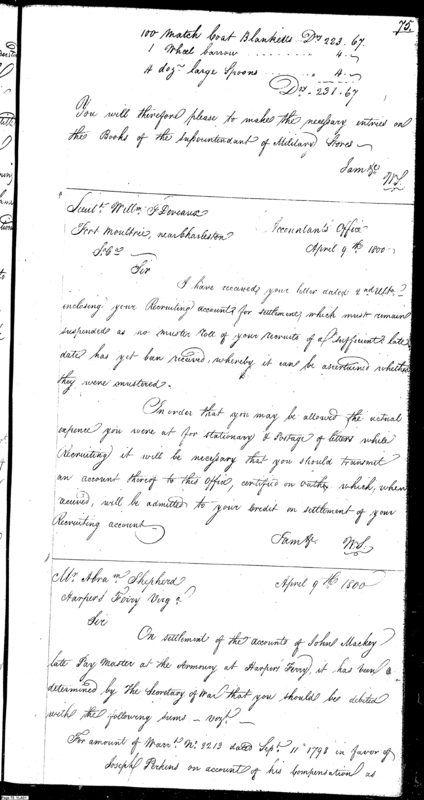 75.
100 Match Coat Blanketts Drs 223.67.
1 Wheel barrow ............ " 4.~
4 dozn large Spoons ......... " 4.~
Drs. 231.67
You will therefore please to make the necessary entries on
the Books of the Superintendant of Military Stores~
I am &c.
W.S.
Lieutt. Willm. F Deveaux
Fort Moultrie, near Charleston
So. Ca.
Accountant's Office
April 9th 1800
Sir
I have received your letter dated 2nd Ulto.
enclosing your Recruiting accounts for settlement, which must remain
suspended as no muster Roll of your recruits of a sufficient late
date has yet been received, whereby it can be ascertained whether
they were mustered.
In order that you may be allowed the actual
expence you were at for stationary & Postage of letters while
Recruiting it will be necessary that you should transmit
an account thereof to this Office, certified on oath, which, when
received, will be admitted to your Credit on settlement of your
Recruiting account~
I am &c.
W.S.
Mr. Abram Shepherd
Harpers Ferry Virga.
April 9th 1800
Sir
On settlement of the accounts of John Mackey
late Pay Master at the Armoury at Harpers Ferry, it has been
determined by The Secretary of War that you should be debited
with the following sums ~ vizt. ~
For amount of Warrt. No. 3213 dated Sept. 11 1798 in favor of
Joseph Perkins on account of his Compensation as